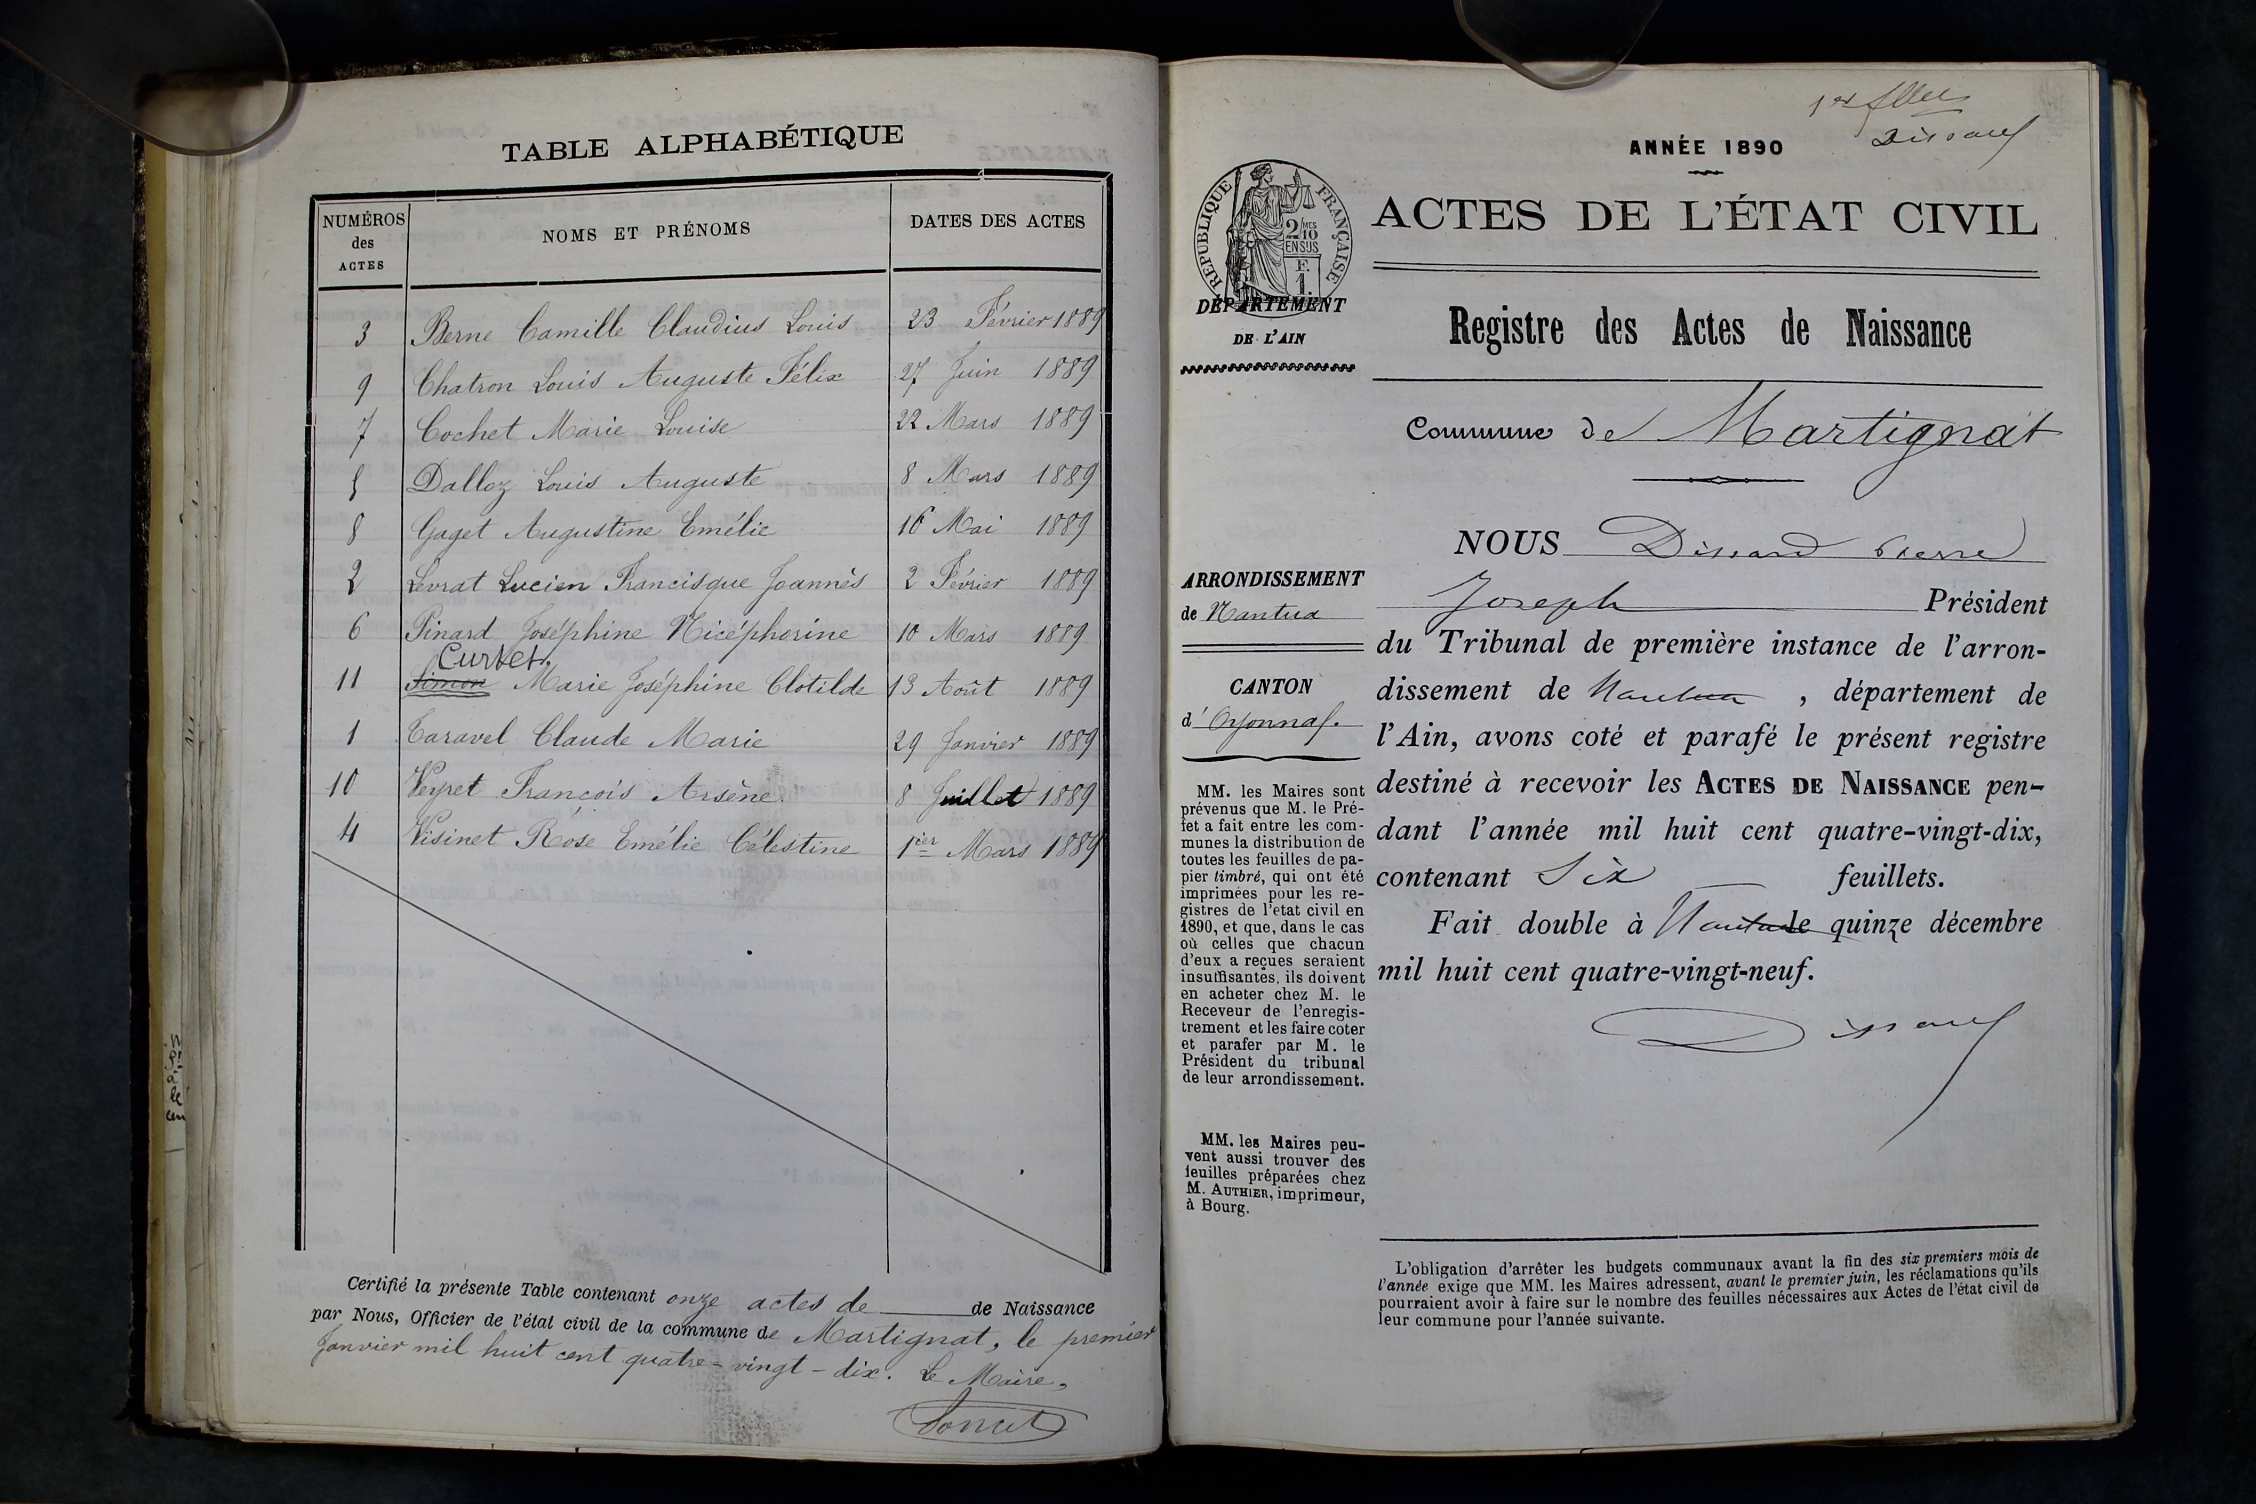 TABLE ALPHABÉTIQUE
NUMÉROS des ACTES NOMS ET PRÉNOMS DATES DES ACTES
3 Berne Camille Claudius Louis 23 Février 1889
9 Chatron Louis Auguste Félix 27 Juin 1889
7 Cochet Marie Louise 22 Mars 1889
5 Dalloz Louis Auguste 8 Mars 1889
8 Gaget Augustine Emélie 16 Mai 1889
2 Levrat Lucien Francisque Joannès 2 Février 1889
6 Pinard Joséphine Nicéphorine 10 Mars 1889
Curtet.
11 Simon Marie Joséphine Clotilde 13 Août 1889
1 Taravel Claude Marie 29 Janvier 1889
10 Veyret François Arsène 8 Juillet 1889
4 Visinet Rose Emélie Célestine 1ier Mars 1889
Certifié la présente Table contenant onze actes de de Naissance
par Nous, Officier de l'état civil de la commune de Martignat, le premier
Janvier mil huit cent quatre-vingt-dix. Le Maire,
1er
Dissard
ANNÉE 1890
RÉPUBLIQUE FRANÇAISE
2/10 MES
EN SUS
F.
1.
ACTES DE L'ÉTAT CIVIL
DÉPARTEMENT
DE L'AIN
Registre des Actes de Naissance
Commune de Martignat
NOUS Dissard Pierre
Joseph Président
du Tribunal de première instance de l'arron-
dissement de Nantua , département de
l'Ain, avons coté et parafé le présent registre
destiné à recevoir les ACTES DE NAISSANCE pen-
dant l'année mil huit cent quatre-vingt-dix,
contenant Six feuillets.
Fait double à Nantua le quinze décembre
mil huit cent quatre-vingt-neuf.
Dissard
ARRONDISSEMENT
de Nantua
CANTON
d'Oyonnax.
MM. les Maires sont
prévenus que M. le Pré-
fet a fait entre les com-
munes la distribution de
toutes les feuilles de pa-
pier timbré, qui ont été
imprimées pour les re-
gistres de l'etat civil en
1890, et que, dans le cas
où celles que chacun
d'eux a reçues seraient
insuffisantes, ils doivent
en acheter chez M. le
Receveur de l'enregis-
trement et les faire coter
et parafer par M. le
Président du tribunal
de leur arrondissement.
MM. les Maires peu-
vent aussi trouver des
feuilles préparées chez
M. AUTHIER, imprimeur,
à Bourg.
L'obligation d'arrêter les budgets communaux avant la fin des six premiers mois de
l'année exige que MM. les Maires adressent, avant le premier juin, les réclamations qu'ils
pourraient avoir à faire sur le nombre des feuilles nécessaires aux Actes de l'état civil de
leur commune pour l'année suivante.